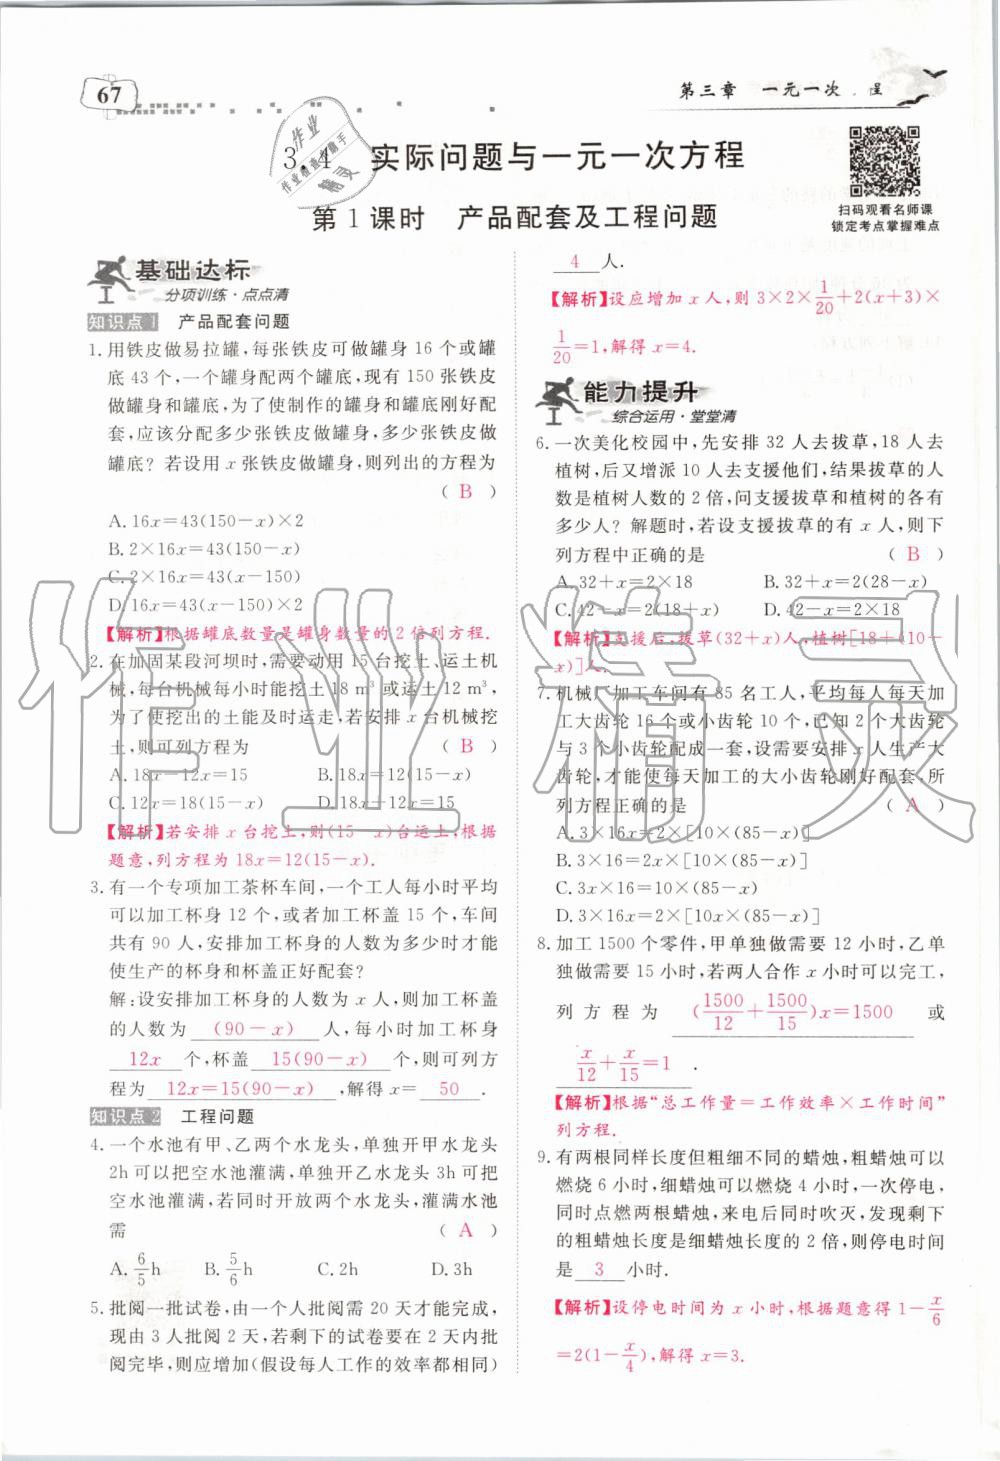 67
第三章 一元一次 程
3.4 实际问题与一元一次方程
第1课时 产品配套及工程问题
扫码观看名师课
锁定考点掌握难点
基础达标
分项训练·点点清
知识点1 产品配套问题
1.用铁皮做易拉罐,每张铁皮可做罐身16个或罐
底43个,一个罐身配两个罐底,现有150张铁皮
做罐身和罐底,为了使制作的罐身和罐底刚好配
套,应该分配多少张铁皮做罐身,多少张铁皮做
罐底?若设用x张铁皮做罐身,则列出的方程为
( B )
A.16x=43(150-x)×2
B.2×16x=43(150-x)
C.2×16x=43(150-x)
D.16x=43(x-150)×2
【解析】根据罐底数量是罐身数量的2倍列方程.
2.在加固某段河坝时,需要动用15台挖土、运土机
械,每台机械每小时能挖土18 m³或运土12 m³,
为了使挖出的土能及时运走,若安排x台机械挖
土,则可列方程为 ( B )
A.18x-12x=15 B.18x=12(15-x)
C.12x=18(15-x) D.18x+12x=15
【解析】若安排x台挖土,则(15-x)台运土,根据
题意,列方程为18x=12(15-x).
3.有一个专项加工茶杯车间,一个工人每小时平均
可以加工杯身12个,或者加工杯盖15个,车间
共有90人,安排加工杯身的人数为多少时才能
使生产的杯身和杯盖正好配套?
解:设安排加工杯身的人数为x人,则加工杯盖
的人数为 (90-x) 人,每小时加工杯身
12x 个,杯盖 15(90-x) 个,则可列方
程为 12x=15(90-x) ,解得x= 50 .
知识点2 工程问题
4.一个水池有甲、乙两个水龙头,单独开甲水龙头
2h可以把空水池灌满,单独开乙水龙头3h可把
空水池灌满,若同时开放两个水龙头,灌满水池
需 ( A )
A.6/5h B.5/6h C.2h D.3h
5.批阅一批试卷,由一个人批阅需20天才能完成,
现由3人批阅2天,若剩下的试卷要在2天内批
阅完毕,则应增加(假设每人工作的效率都相同)
4 人.
【解析】设应增加x人,则3×2×1/20+2(x+3)×
1/20=1,解得x=4.
能力提升
综合运用·堂堂清
6.一次美化校园中,先安排32人去拔草,18人去
植树,后又增派10人去支援他们,结果拔草的人
数是植树人数的2倍,问支援拔草和植树的各有
多少人?解题时,若设支援拔草的有x人,则下
列方程中正确的是 ( B )
A.32+x=2×18 B.32+x=2(28-x)
C.42-x=2(18+x) D.42-x=2×18
【解析】支援后,拔草(32+x)人,植树[18+(10-
x)]人.
7.机械厂加工车间有85名工人,平均每人每天加
工大齿轮16个或小齿轮10个,已知2个大齿轮
与3个小齿轮配成一套,设需要安排x人生产大
齿轮,才能使每天加工的大小齿轮刚好配套,所
列方程正确的是 ( A )
A.3×16x=2×10(85-x)
B.3×16=2x×[10×(85-x)]
C.3×16x=10(85-x)
D.3×16=2×[10×(85-x)]
8.加工1500个零件,甲单独做需要12小时,乙单
独做需要15小时,若两人合作x小时可以完工,
列方程为 (1500/12+1500/15)x=1500 或
x/12+x/15=1 .
【解析】根据“总工作量=工作效率×工作时间”
列方程.
9.有两根同样长度但粗细不同的蜡烛,粗蜡烛可以
燃烧6小时,细蜡烛可以燃烧4小时,一次停电,
同时点燃两根蜡烛,来电后同时吹灭,发现剩下
的粗蜡烛长度是细蜡烛长度的2倍,则停电时间
是 3 小时.
【解析】设停电时间为x小时,根据题意得1-x/6
=2(1-x/4),解得x=3.
作业精灵